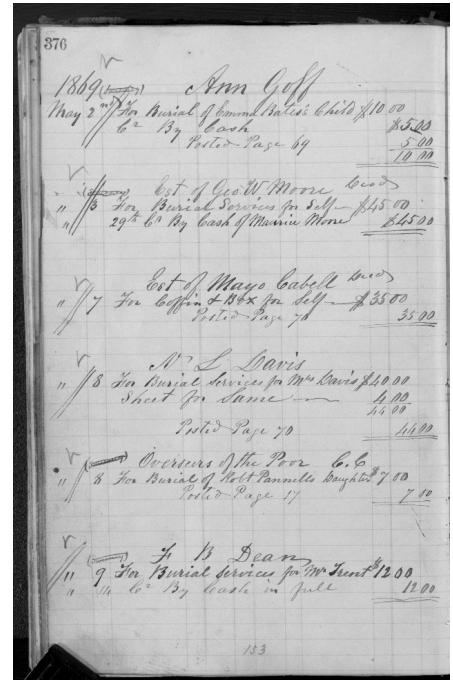 376
1869 Ann Goff
May 2nd For Burial of Emma Bates's Child $10.00
Cr By Cash $5.00
Posted Page 69 5.00
10.00
Est. of Geo W Moore Decd
" 3 For Burial Services for Self $45.00
" 29th Cr By Cash of Maurice Moore $45.00
Est of Mayo Cabell Decd
" 7 For Coffin & Box for Self $35.00
Posted Page 70 35.00
N L Davis
" 8 For Burial Services for Mrs Davis $40.00
Sheet for Same 4.00
44.00
Posted Page 70 44.00
Overseers of the Poor C.C.
" 8 For Burial of Robt Pannells Daughter $7.00
Posted Page 17 7.00
F B Dean
" 9 For Burial Services for Mr Trent $12.00
" 14 Cr By Cash in full 12.00
153